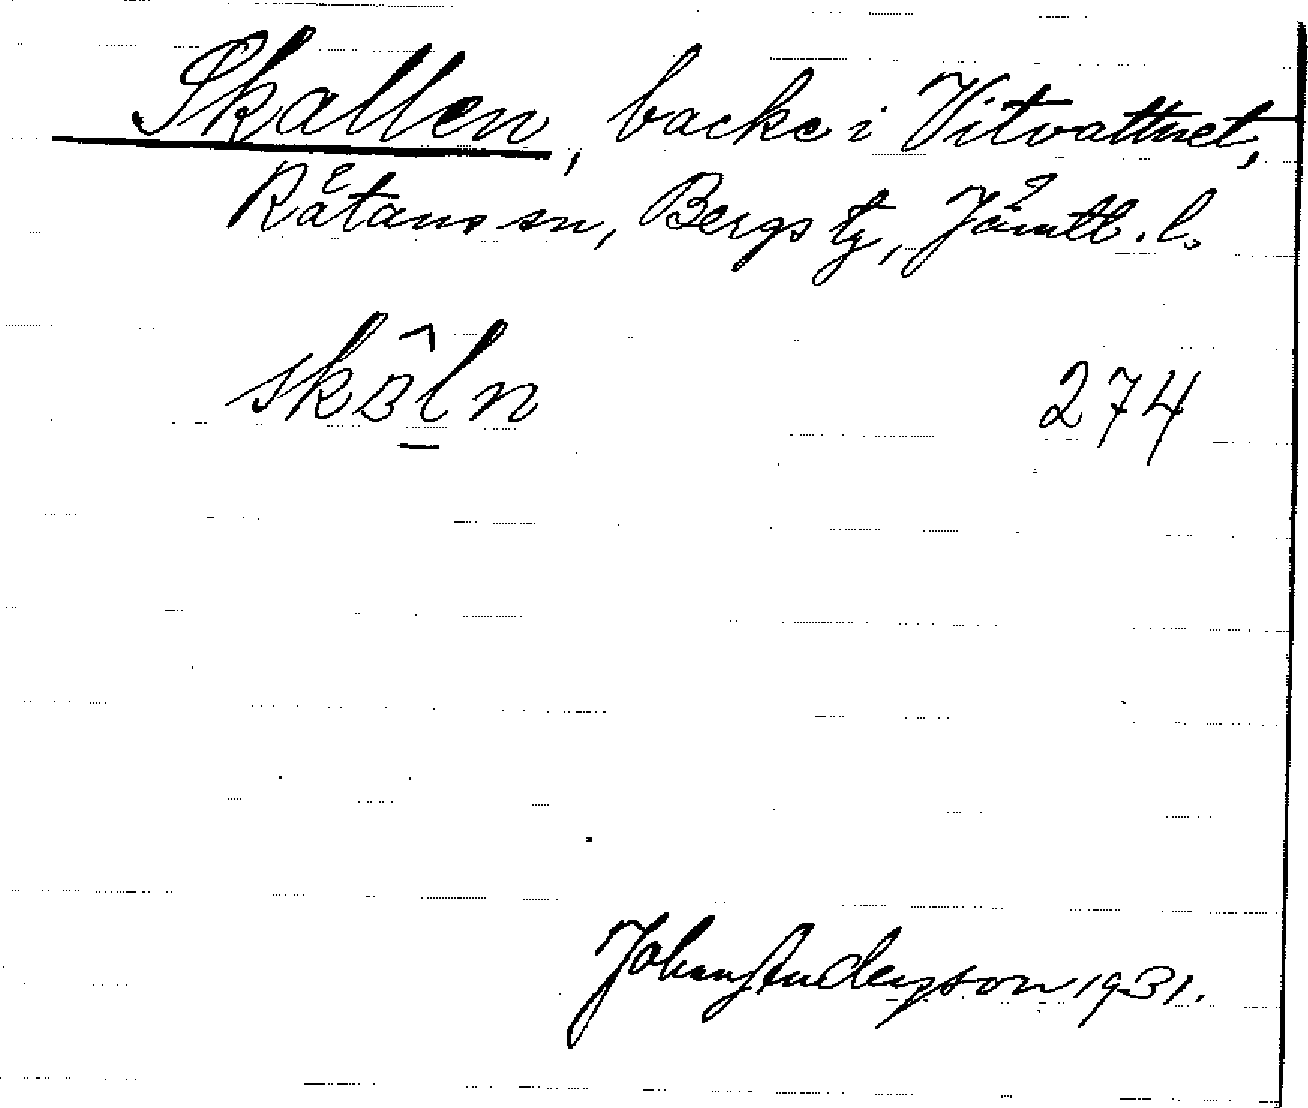 Skallen, backe i Vitvattnet,
Råtans sn, Bergs tg, Jämtl. l.
274
Johan Anderson 1931.